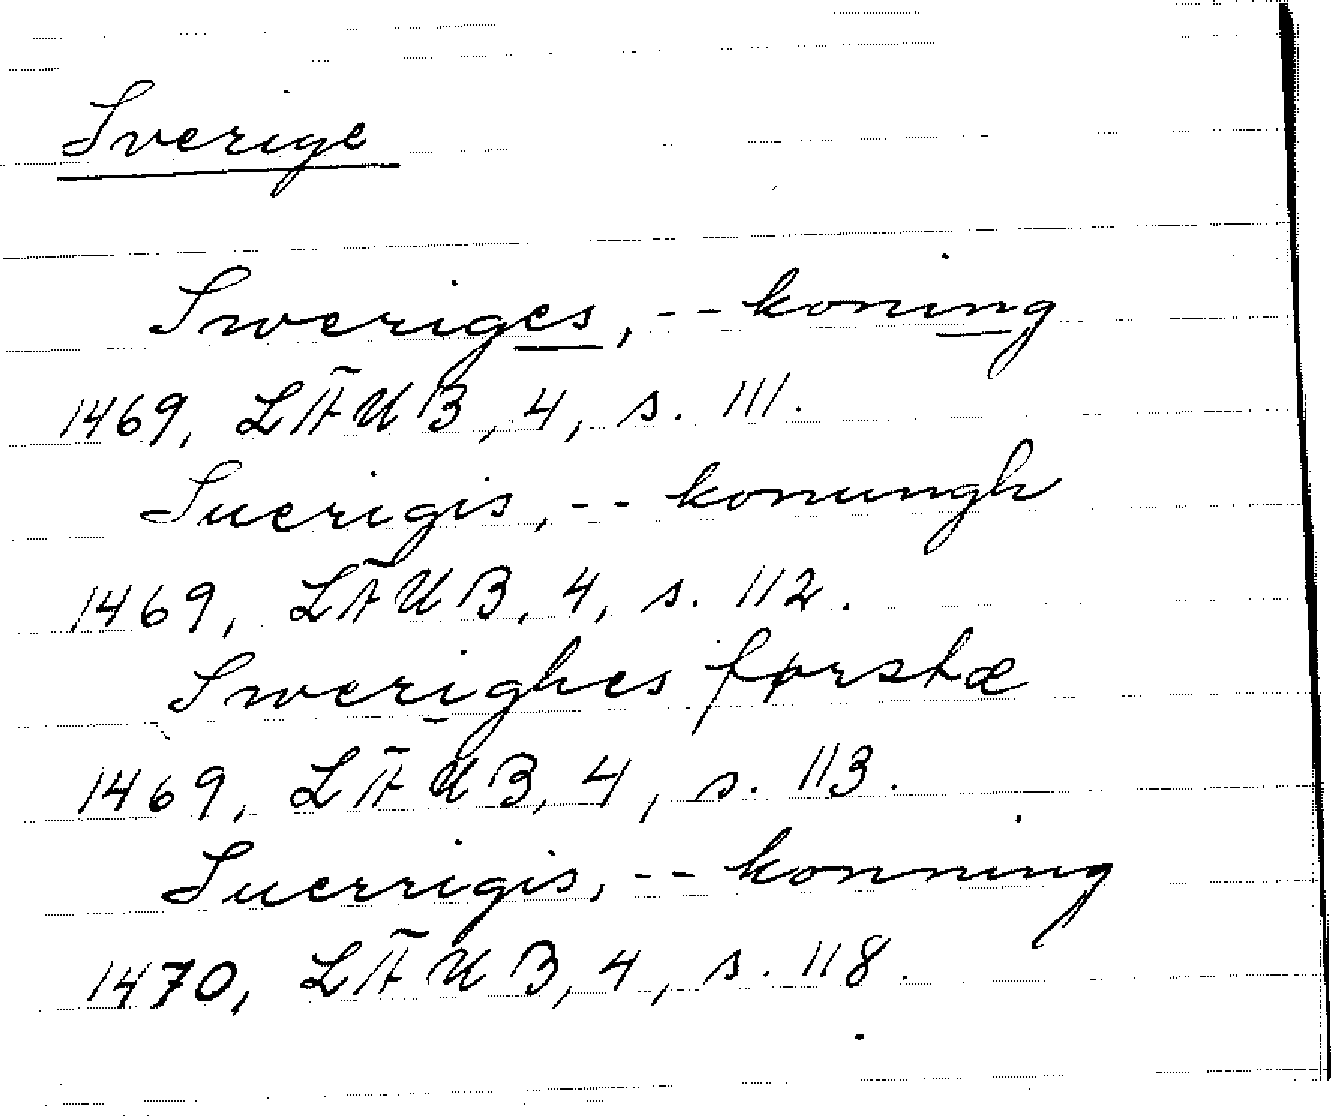 Sverige
Sweriges, -- koning
1469, LÄUB, 4, s. 111.
Suerigis, -- konungh
1469, LÄUB, 4, s. 112.
Swerighes førstæ
1469, LÄUB, 4, s. 113.
Suerrigis, -- konning
1470, LÄUB, 4, s. 118.